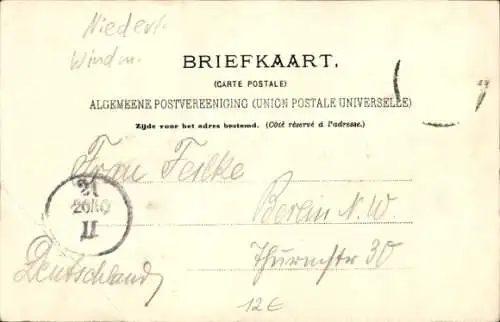 Niederl.
Windm.
BRIEFKAART,
(CARTE POSTALE)
ALGEMEENE POSTVEREENIGING (UNION POSTALE UNIVERSELLE)
Zijde voor het adres bestemd. (Côté réservé à l'adresse.)
Frau Feilke
21
II
Berlin N.W.
30
Deutschland
12€